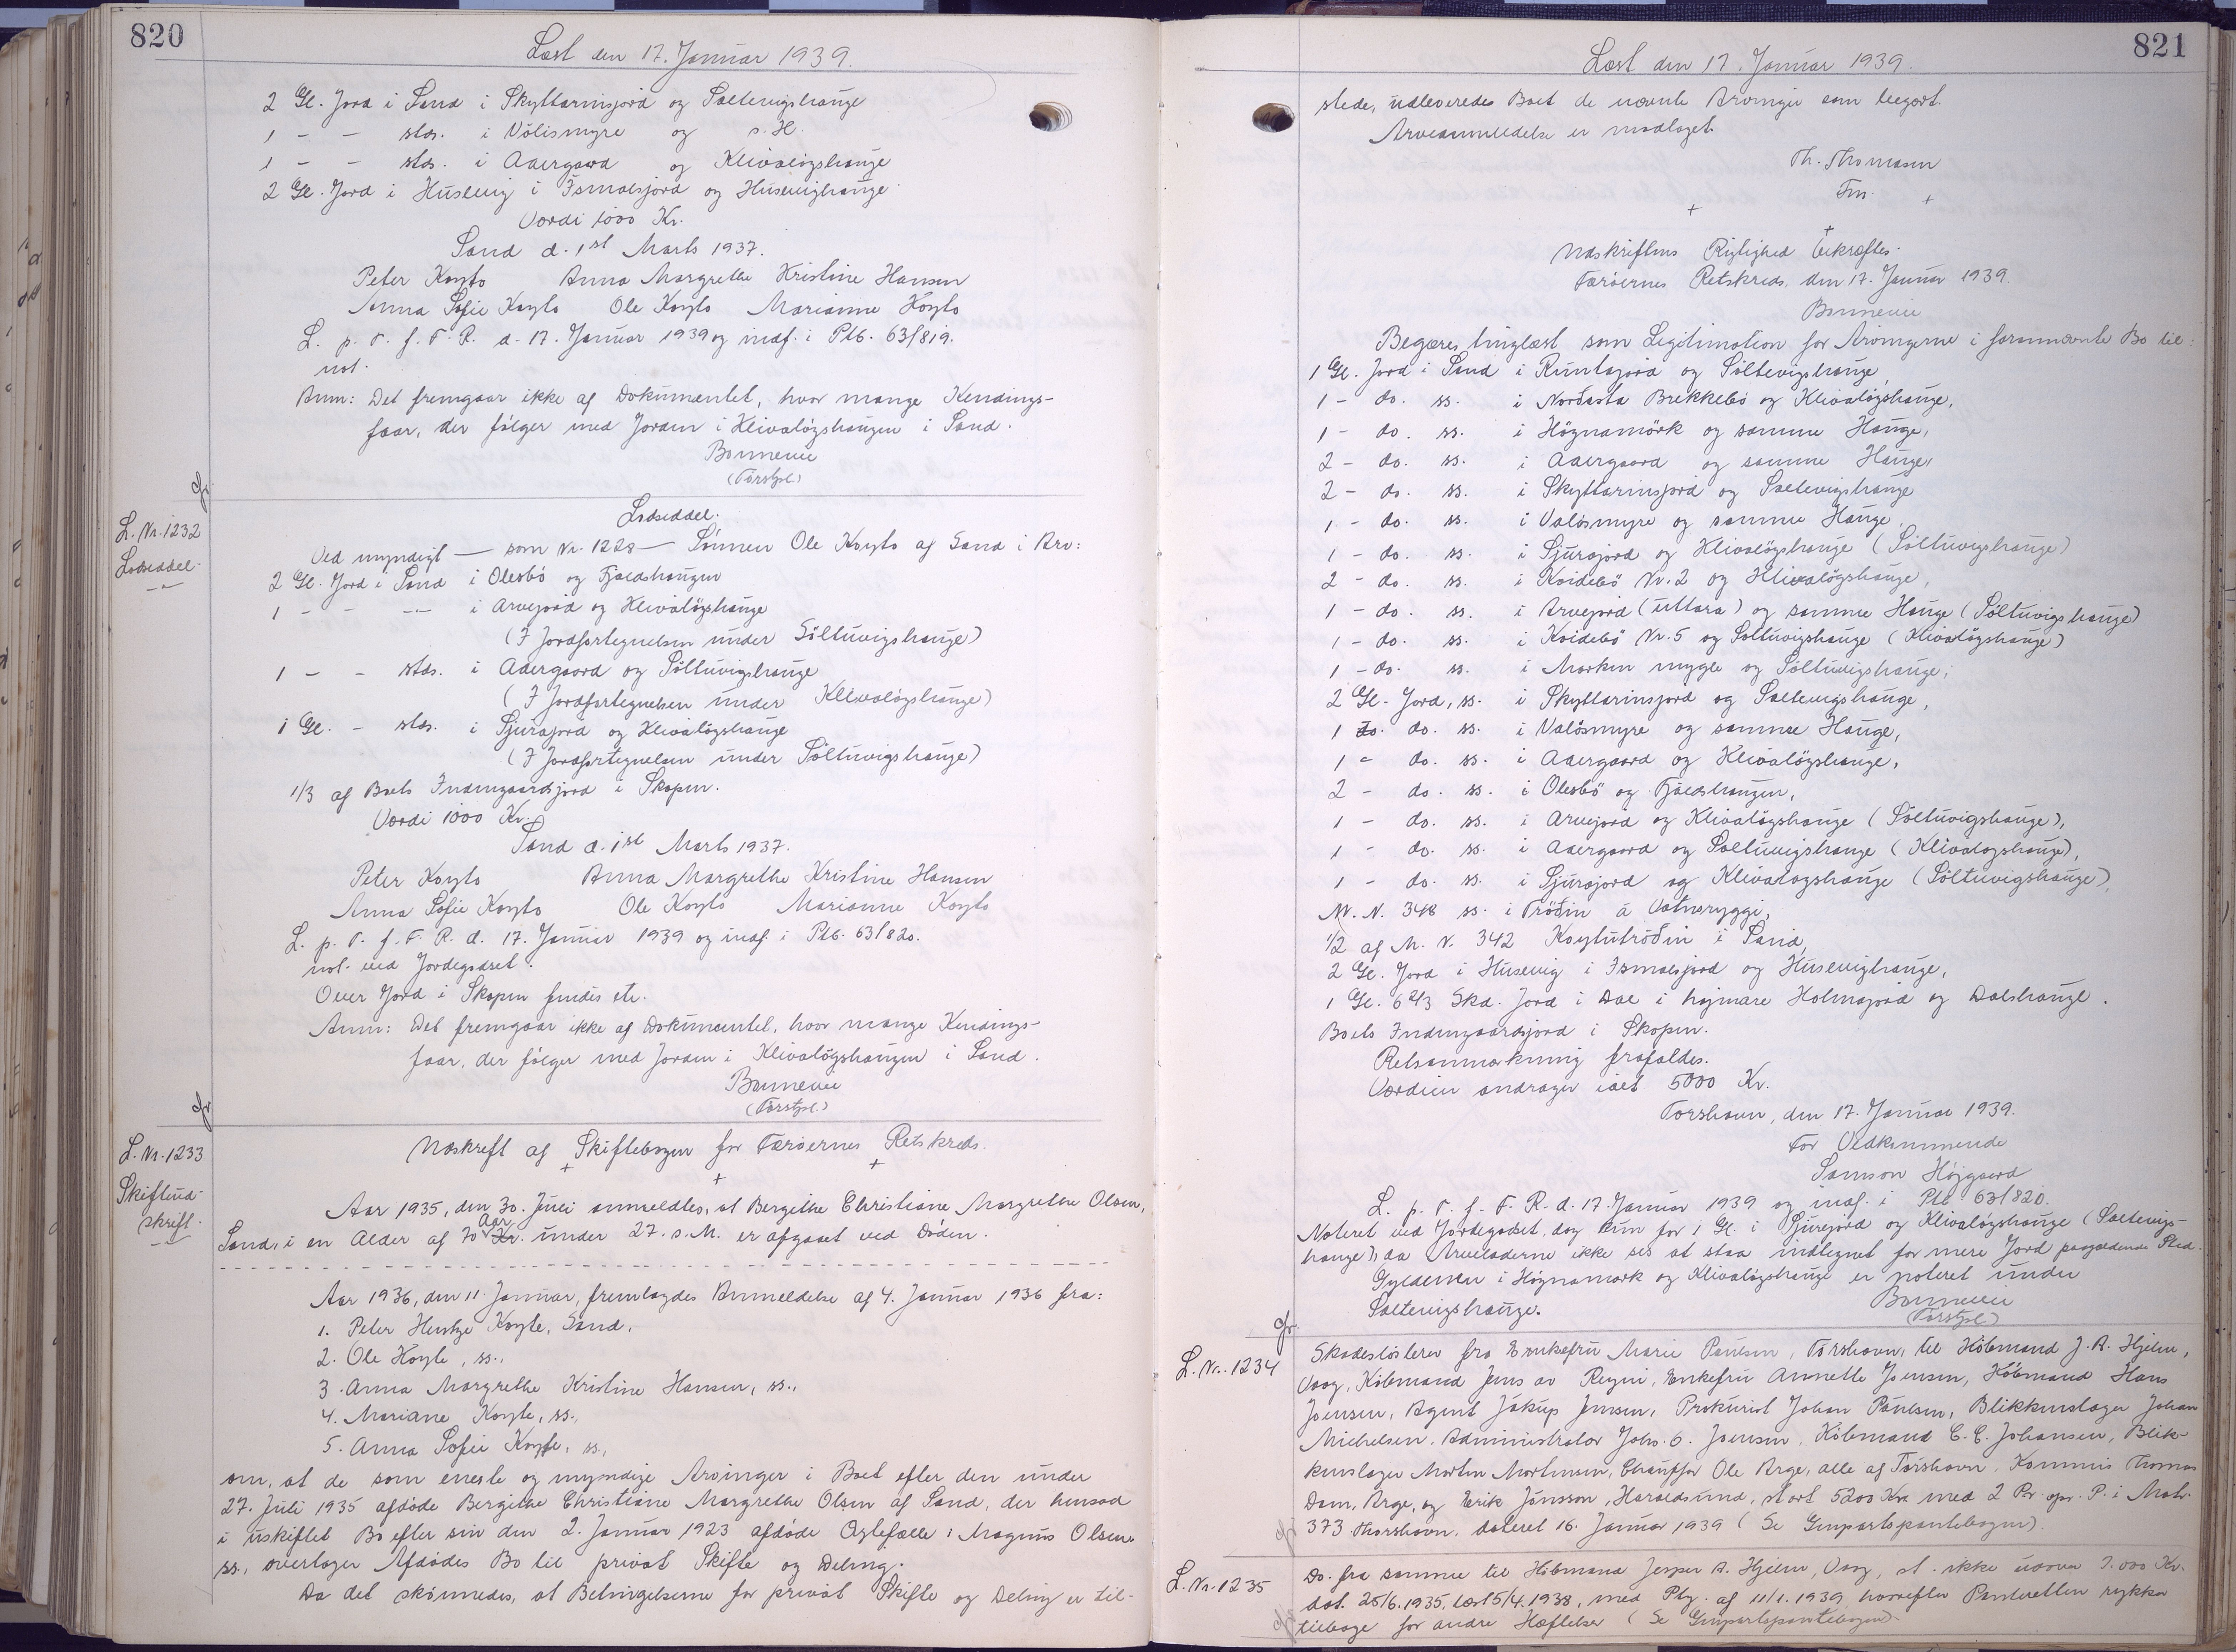 820
Læst den 17. Januar 1939.
2 Gl. Jord i Sand i Skyttarinsjord og Saltevigshauge
1 - - stds. i Völismyre og s. H.
1 - - stds. i Aaergaard og Klivalögshauge
2 Gl. Jord i Husevig i Ismalsjord og Husevighauge
Værdi 1000 Kr.
Sand d. 1st Marts 1937.
Peter Koyto Anna Margrethe Kristine Hansen
Anna Sofie Koyto Ole Koyto Marianne Koyto
L. p. T. f. F. R. d. 17. Januar 1939 og indf. i Ptb. 63/819.
not.
Anm: Det fremgaar ikke af Dokumentet, hvor mange Kendings-
faar, der følger med Jorden i Klivalögshaugen i Sand.
Bonnevie
(Torstjel.)
L. Nr. 1232
Lodseddel
Lodseddel.
Ved myndigt — som Nr. 1228 — Sønnen Ole Koyto af Sand i Arv:
2 Gl. Jord i Sand i Olesbö og Fjaldshaugen
1 - - -"- i Arvejord og Klivalögshauge
(I Jordfortegnelsen under Söltuvigshauge)
1 - - stds. i Aaergaard og Söltuvigshauge
(I Jordfortegnelsen under Klivalögshauge)
1 Gl. - stds. i Sjurajord og Klivalögshauge
(I Jordfortegnelsen under Söltuvigshauge)
1/3 af Boets Indengaardsjord i Skopun.
Værdi 1000 Kr.
Sand d. 1st Marts 1937.
Peter Koyto Anna Margrethe Kristine Hansen
Anna Sofie Koyto Ole Koyto Marianne Koyto
L. p. T. f. F. R. d. 17. Januar 1939 og indf. i Ptb. 63/820.
not. ved Jordegodset.
Over Jord i Skopun findes etc.
Anm: Det fremgaar ikke af Dokumentet, hvor mange Kendings-
faar, der følger med Jorden i Klivalögshaugen i Sand.
Bonnevie
(Torstjel.)
L. Nr. 1233
Skifteud-
skrift.
Udskrift af Skiftebogen for Færøernes Retskreds.
Aar 1935, den 30. Juli anmeldtes, at Bergithe Christiane Margrethe Olsen,
Sand, i en Alder af 70 Aar under 27. s. M. er afgaaet ved Døden.
Aar 1936, den 11. Januar, fremlagdes Anmeldelse af 4. Januar 1936 fra:
1. Peter Hentze Koyte, Sand,
2. Ole Koyte, ss.,
3. Anna Margrethe Kristine Hansen, ss.,
4. Mariane Koyte, ss.,
5. Anna Sofie Koyte, ss.,
om, at de som eneste og myndige Arvinger i Boet efter den under
27. Juli 1935 afdøde Bergithe Christiane Margrethe Olsen af Sand, der hensad
i uskiftet Bo efter sin den 2. Januar 1923 afdøde Ægtefælle: Magnus Olsen
ss., overtager Afdødes Bo til privat Skifte og Deling.
Da det skønnedes, at Betingelserne for privat Skifte og Deling er til-
821
Læst den 17. Januar 1939.
stede, udleveredes Boet de nævnte Arvinger som begært.
Arveanmeldelse er modtaget.
Th. Thomasen
Fm.
Udskriftens Rigtighed bekræftes.
Færøernes Retskreds, den 17. Januar 1939.
Bonnevie
Begæres tinglæst som Legitimation for Arvingerne i forannævnte Bo til:
1 Gl. Jord i Sand i Runtajord og Söltevigshauge
1 - do. ss. i Nordasta Brekkebö og Klivalögshauge,
1 - do. ss. i Högnamörk og samme Hauge,
2 - do. ss. i Aaergaard og samme Hauge,
2 - do. ss. i Skyttarinsjord og Saltevigshauge
1 - do. ss. i Valösmyre og samme Hauge,
1 - do. ss. i Sjurajord og Klivalögshauge (Söltuvigshauge)
2 - do. ss. i Koidebö Nr. 2 og Klivalögshauge,
1 - do. ss. i Arvejord (uttara) og samme Hauge (Söltuvigshauge)
1 - do. ss. i Koidebö Nr. 5 og Soltuvigshauge (Klivalögshauge)
1 - do. ss. i Markun mygle og Söltuvigshauge,
2 Gl. Jord, ss. i Skyttarinsjord og Saltevigshauge,
1 do. do. ss. i Valösmyre og samme Hauge,
1 - do. ss. i Aaergaard og Klivalögshauge,
2 - do. ss. i Olesbö og Fjaldshaugen,
1 - do. ss. i Arvejord og Klivalögshauge (Söltuvigshauge),
1 - do. ss. i Aaergaard og Soltuvigshauge (Klivalogshauge),
1 - do. ss. i Sjurajord og Klivalogshauge (Söltuvigshauge),
M. N. 348 ss. i Tröðin á Vatnaryggi,
1/2 af M. N. 342 Koytutröðin i Sand,
2 Gl. Jord i Husevig i Ismalsjord og Husevighauge,
1 Gl. 6 2/3 Skd. Jord i Dal i hojmare Holmajord og Dalshauge.
Boets Indengaardsjord i Skopun.
Retsanmærkning frafaldes.
Værdien andrager ialt 5000 Kr.
Torshavn, den 17. Januar 1939.
For Vedkommende
Samson Højgaard
L. p. T. f. F. R. d. 17. Januar 1939 og indf. i Ptb. 63/820.
Noteret ved Jordegodset, dog kun for 1 Gl. i Sjurejord og Klivalögshauge (Saltevigs-
hauge), da Arveladerne ikke ses at staa indtegnet for mere Jord paagældende Sted.
Gyldenen i Högnamørk og Klivalögshauge er noteret under
Saltevigshauge.
Bonnevie
(Torstjel.)
L. Nr. 1234
Skadesløsbrev fra Enkefru Marie Paulsen, Tórshavn, til Købmand J. A. Hjelm,
Vaag, Købmand Jens av Reyni, Enkefru Annette Joensen, Købmand Hans
Joensen, Agent Jákup Jensen, Prokurist Johan Paulsen, Blikkenslager Johan
Michelsen, Administrator Johs. O. Joensen, Købmand C. C. Johansen, Blik-
kenslager Morten Mortensen, Chauffør Ole Arge, alle af Tórshavn, Kommis Thomas
Dam, Arge, og Erik Jónsson, Haraldsund, stort 5200 Kr. med 2 Pr. opr. P. i Matr.
373 Thorshavn, dateret 16. Januar 1939 (Se Genpartspantebogen).
L. Nr. 1235
Do. fra samme til Købmand Jesper A. Hjelm, Vaag, st. ikke udover 7.000 Kr.
dat. 25/6. 1935, læst 5/4. 1938, med Ptg. af 11/1. 1939, hvorefter Panteretten rykker
tilbage for andre Hæftelser (Se Genpartspantebogen).